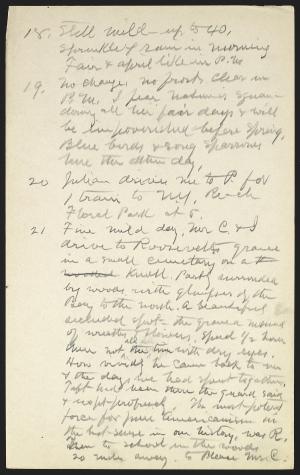 18. Still mild - up to 40,
sprinkle of rain in morning
Fair & april like in P.M.
19. No change, no frost, clear in
P.M. I fear Nature is squan-
dering all her fair days & will
be impoverished before Spring.
Blue birds & song sparrows
here the other day,
20 Julian drives me to P. for
1 train to N.Y. Reach
Floral Park at 5.
21 Fine mild day, Mr C & I
drive to Roosevelts grave
in a small cemetery on a
wooded knoll. Partly surrounded
by woods with glimpses of the
Bay to the north. A beautiful
secluded spot - the grave a mound
of wreaths & flowers. Spend ½ hour
there not all the time with dry eyes.
How vividly he came back to me
& the day we had spent together,
Taft had been there the guard said
& wept profusely. The most potent
force for pure Americanism in
the best sense in our history, was R.
Then to school in the woods
20 miles away, to please Mrs C.